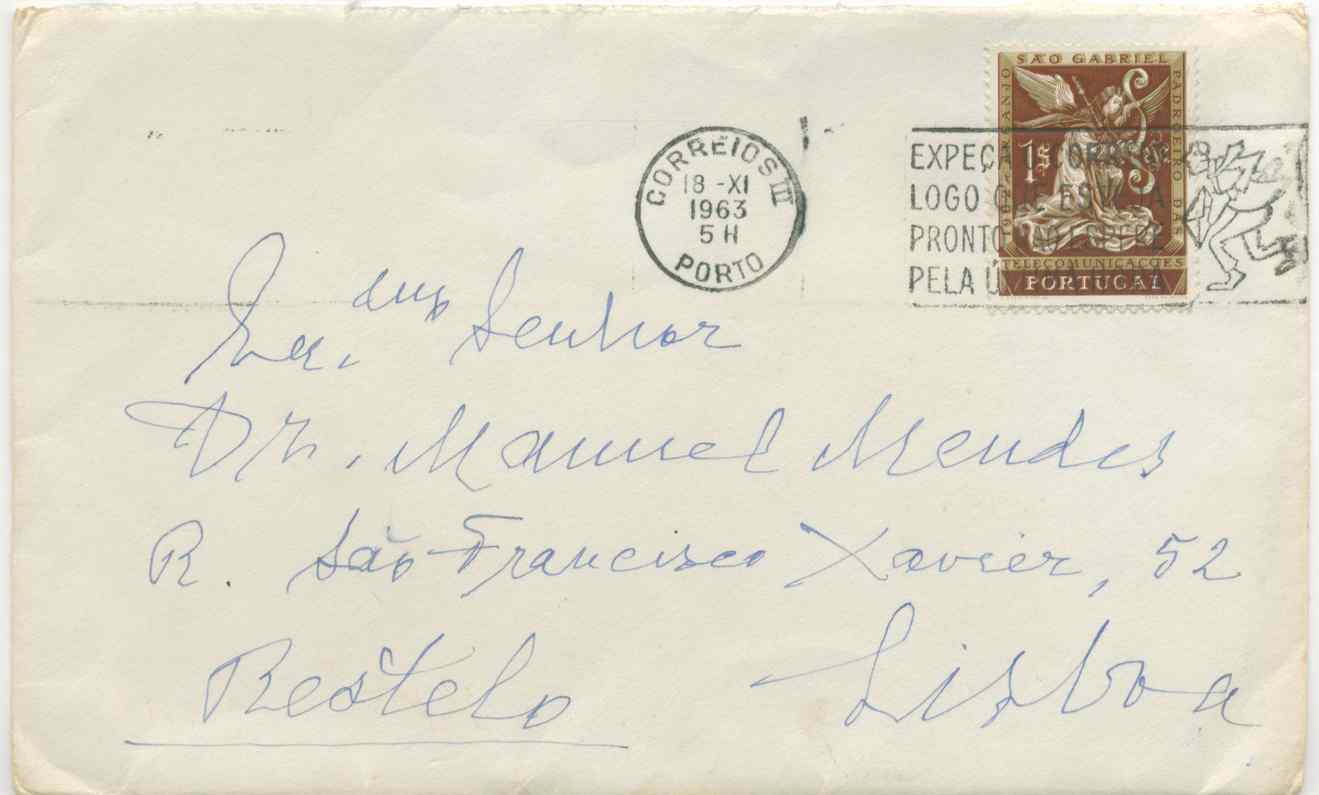 SÃO GABRIEL
ARCANJO
PADROEIRO DAS
TELECOMUNICAÇÕES
1$
PORTUGAL
CORREIOS III
18 -XI
1963
5 H
PORTO
EXPEÇA O CORREIO
LOGO QUE ESTEJA
PRONTO NÃO ESPERE
PELA ÚLTIMA HORA
Senhor
Dr. Manuel Mendes
R. São Francisco Xavier, 52
Restelo Lisboa